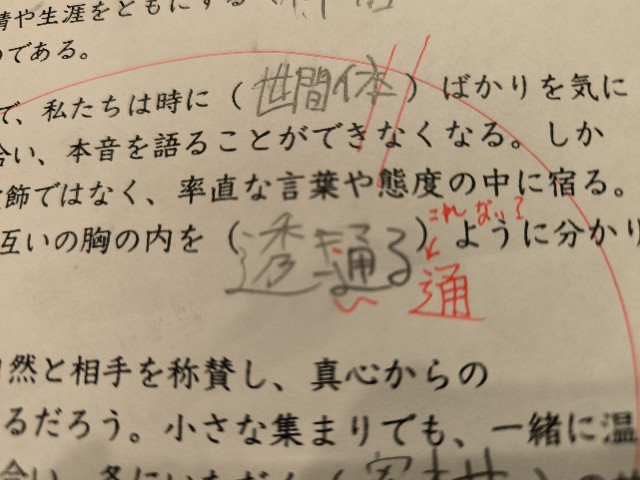 情や生涯をともにする
のである。
で、私たちは時に（世間体）ばかりを気に
合い、本音を語ることができなくなる。しか
飾ではなく、率直な言葉や態度の中に宿る。
これない?
互いの胸の内を（透き通る）ように分かり
通
然と相手を称賛し、真心からの
るだろう。小さな集まりでも、一緒に温